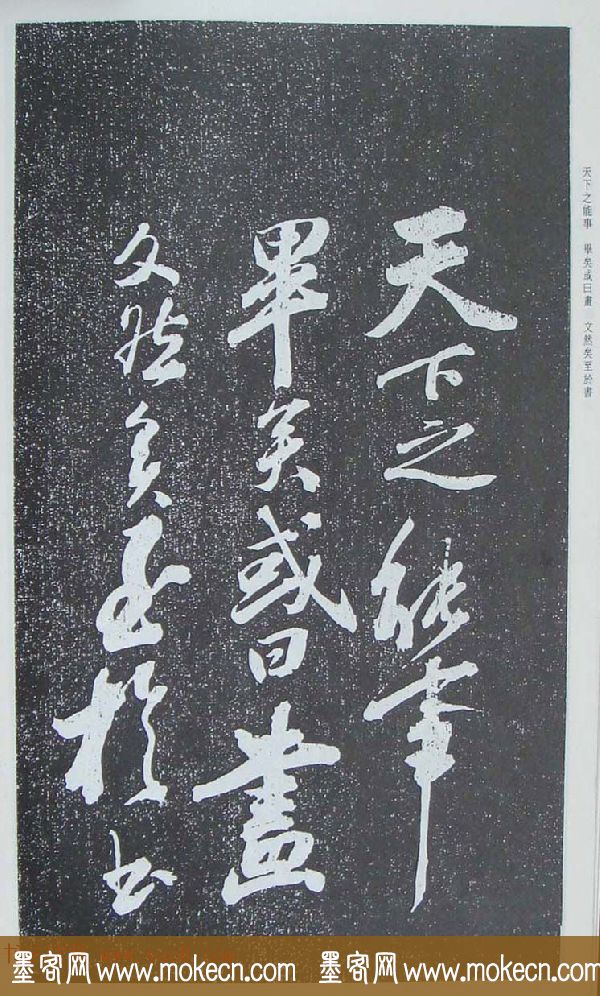 天下之能事
畢矣或曰畫
文然矣至於书
天下之能事 畢矣或曰畫 文然矣至於書
墨客网 www.mokecn.com 墨客网 www.mokecn.com